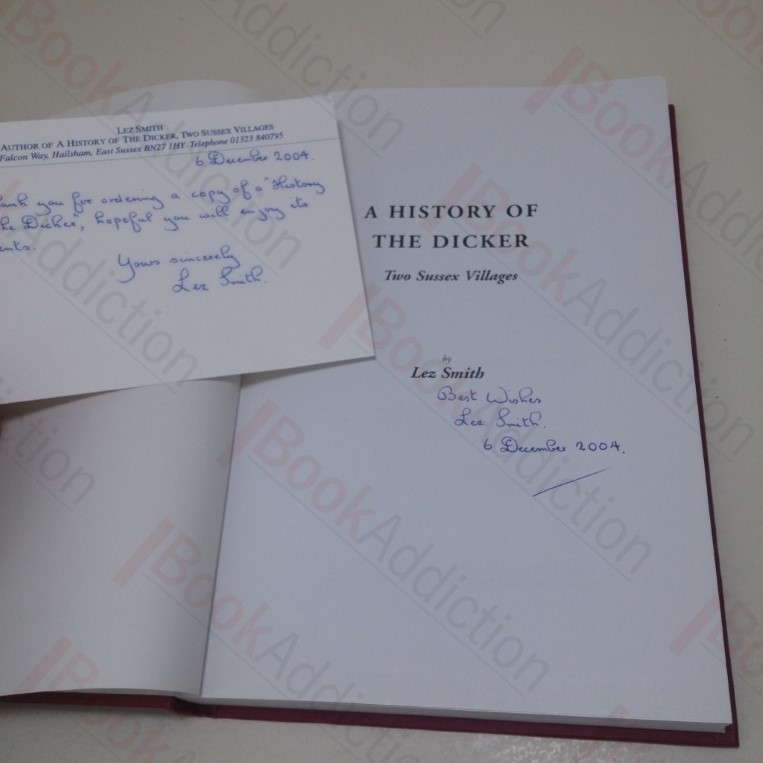 LEZ SMITH
AUTHOR OF A HISTORY OF THE DICKER, TWO SUSSEX VILLAGES
Falcon Way, Hailsham, East Sussex BN27 1HY Telephone 01323 840795
6 December 2004.
ank you for ordering a copy of a "History
he Dicker", hopeful you will enjoy its
ents.
Yours sincerely
Lez Smith.
A HISTORY OF
THE DICKER
Two Sussex Villages
by
Lez Smith
Best Wishes
Lez Smith.
6 December 2004.
BookAddiction